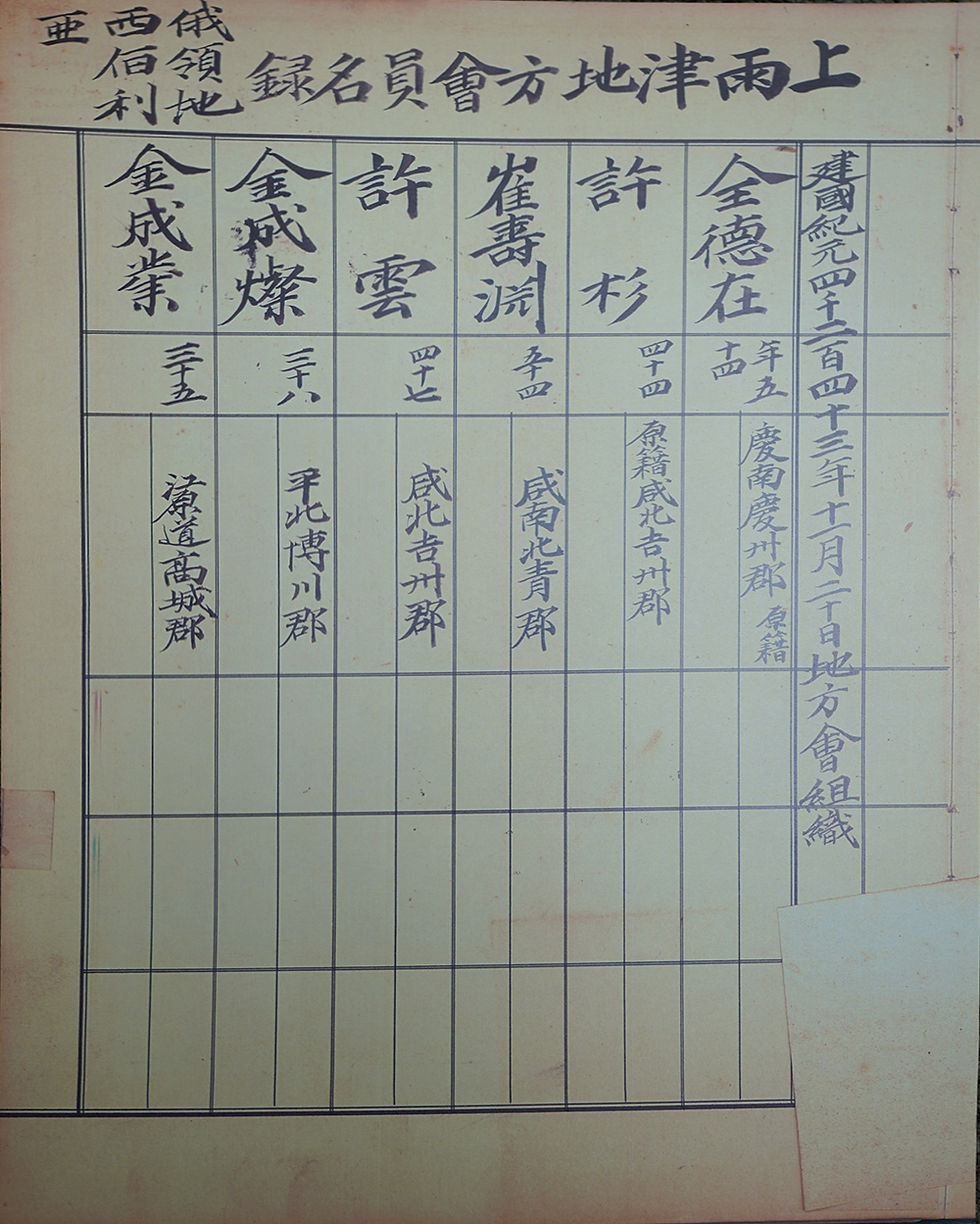 上雨津地方會員名録
俄領地
西佰利
亜
建國紀元四千二百四十三年十一月二十日地方會組織
全德在
年五
十四
慶南慶州郡
原籍
許杉
四十四
原籍咸北吉州郡
崔壽淵
五十四
咸南北青郡
許雲
四十七
咸北吉州郡
金成燦
三十八
平北博川郡
金成業
三十五
原道高城郡